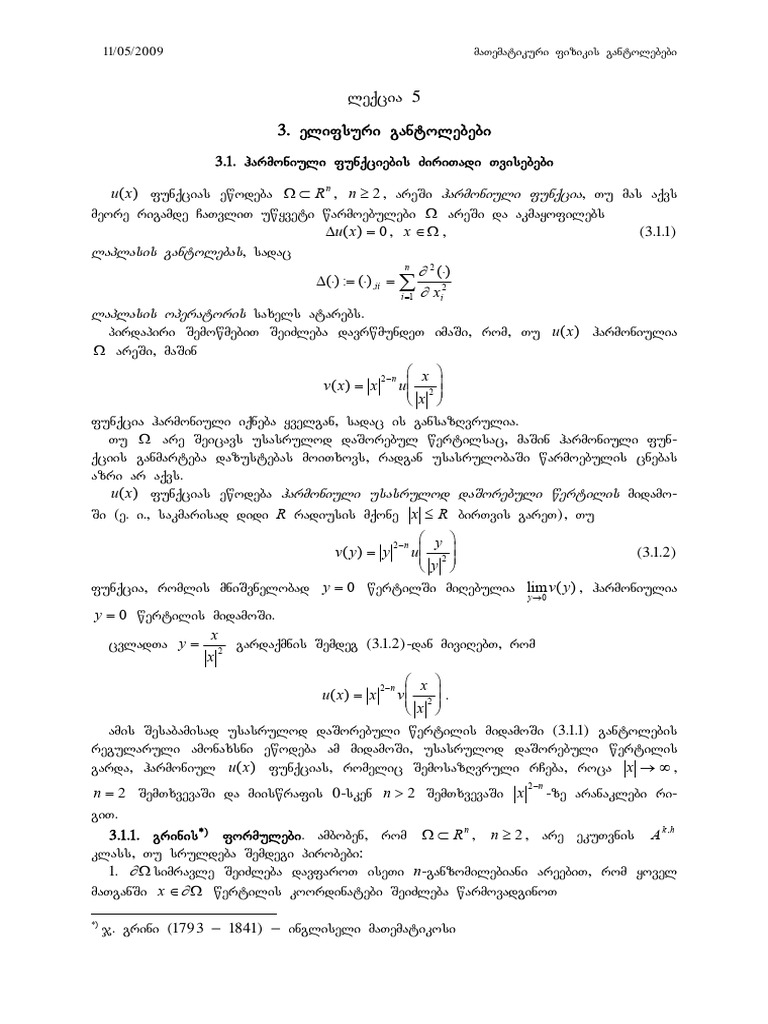 11/05/2009 მათემატიკური ფიზიკის განტოლებები
ლექცია 5
3. ელიფსური განტოლებები
3.1. ჰარმონიული ფუნქციების ძირითადი თვისებები
u(x) ფუნქციას ეწოდება Ω ⊂ Rⁿ, n ≥ 2, არეში ჰარმონიული ფუნქცია, თუ მას აქვს
მეორე რიგამდე ჩათვლით უწყვეტი წარმოებულები Ω არეში და აკმაყოფილებს
Δu(x) = 0, x ∈ Ω, (3.1.1)
ლაპლასის განტოლებას, სადაც
Δ(·) := (·),ᵢᵢ = ∑_{i=1}^{n} ∂²(·)/∂xᵢ²
ლაპლასის ოპერატორის სახელს ატარებს.
პირდაპირი შემოწმებით შეიძლება დავრწმუნდეთ იმაში, რომ, თუ u(x) ჰარმონიულია
Ω არეში, მაშინ
v(x) = |x|^{2−n} u(x/|x|²)
ფუნქცია ჰარმონიული იქნება ყველგან, სადაც ის განსაზღვრულია.
თუ Ω არე შეიცავს უსასრულოდ დაშორებულ წერტილსაც, მაშინ ჰარმონიული ფუნ-
ქციის განმარტება დაზუსტებას მოითხოვს, რადგან უსასრულობაში წარმოებულის ცნებას
აზრი არ აქვს.
u(x) ფუნქციას ეწოდება ჰარმონიული უსასრულოდ დაშორებული წერტილის მიდამო-
ში (ე. ი., საკმარისად დიდი R რადიუსის მქონე |x| ≤ R ბირთვის გარეთ), თუ
v(y) = |y|^{2−n} u(y/|y|²) (3.1.2)
ფუნქცია, რომლის მნიშვნელობად y = 0 წერტილში მიღებულია lim_{y→0} v(y), ჰარმონიულია
y = 0 წერტილის მიდამოში.
ცვლადთა y = x/|x|² გარდაქმნის შემდეგ (3.1.2)-დან მივიღებთ, რომ
u(x) = |x|^{2−n} v(x/|x|²).
ამის შესაბამისად უსასრულოდ დაშორებული წერტილის მიდამოში (3.1.1) განტოლების
რეგულარული ამონახსნი ეწოდება ამ მიდამოში, უსასრულოდ დაშორებული წერტილის
გარდა, ჰარმონიულ u(x) ფუნქციას, რომელიც შემოსაზღვრული რჩება, როცა |x| → ∞,
n = 2 შემთხვევაში და მიისწრაფის 0-სკენ n > 2 შემთხვევაში |x|^{2−n}-ზე არანაკლები რი-
გით.
3.1.1. გრინის*) ფორმულები. ამბობენ, რომ Ω ⊂ Rⁿ, n ≥ 2, არე ეკუთვნის A^{k,h}
კლასს, თუ სრულდება შემდეგი პირობები:
1. ∂Ω სიმრავლე შეიძლება დავფაროთ ისეთი n-განზომილებიანი არეებით, რომ ყოველ
მათგანში x ∈ ∂Ω წერტილის კოორდინატები შეიძლება წარმოვადგინოთ
*) ჯ. გრინი (1793 – 1841) – ინგლისელი მათემატიკოსი